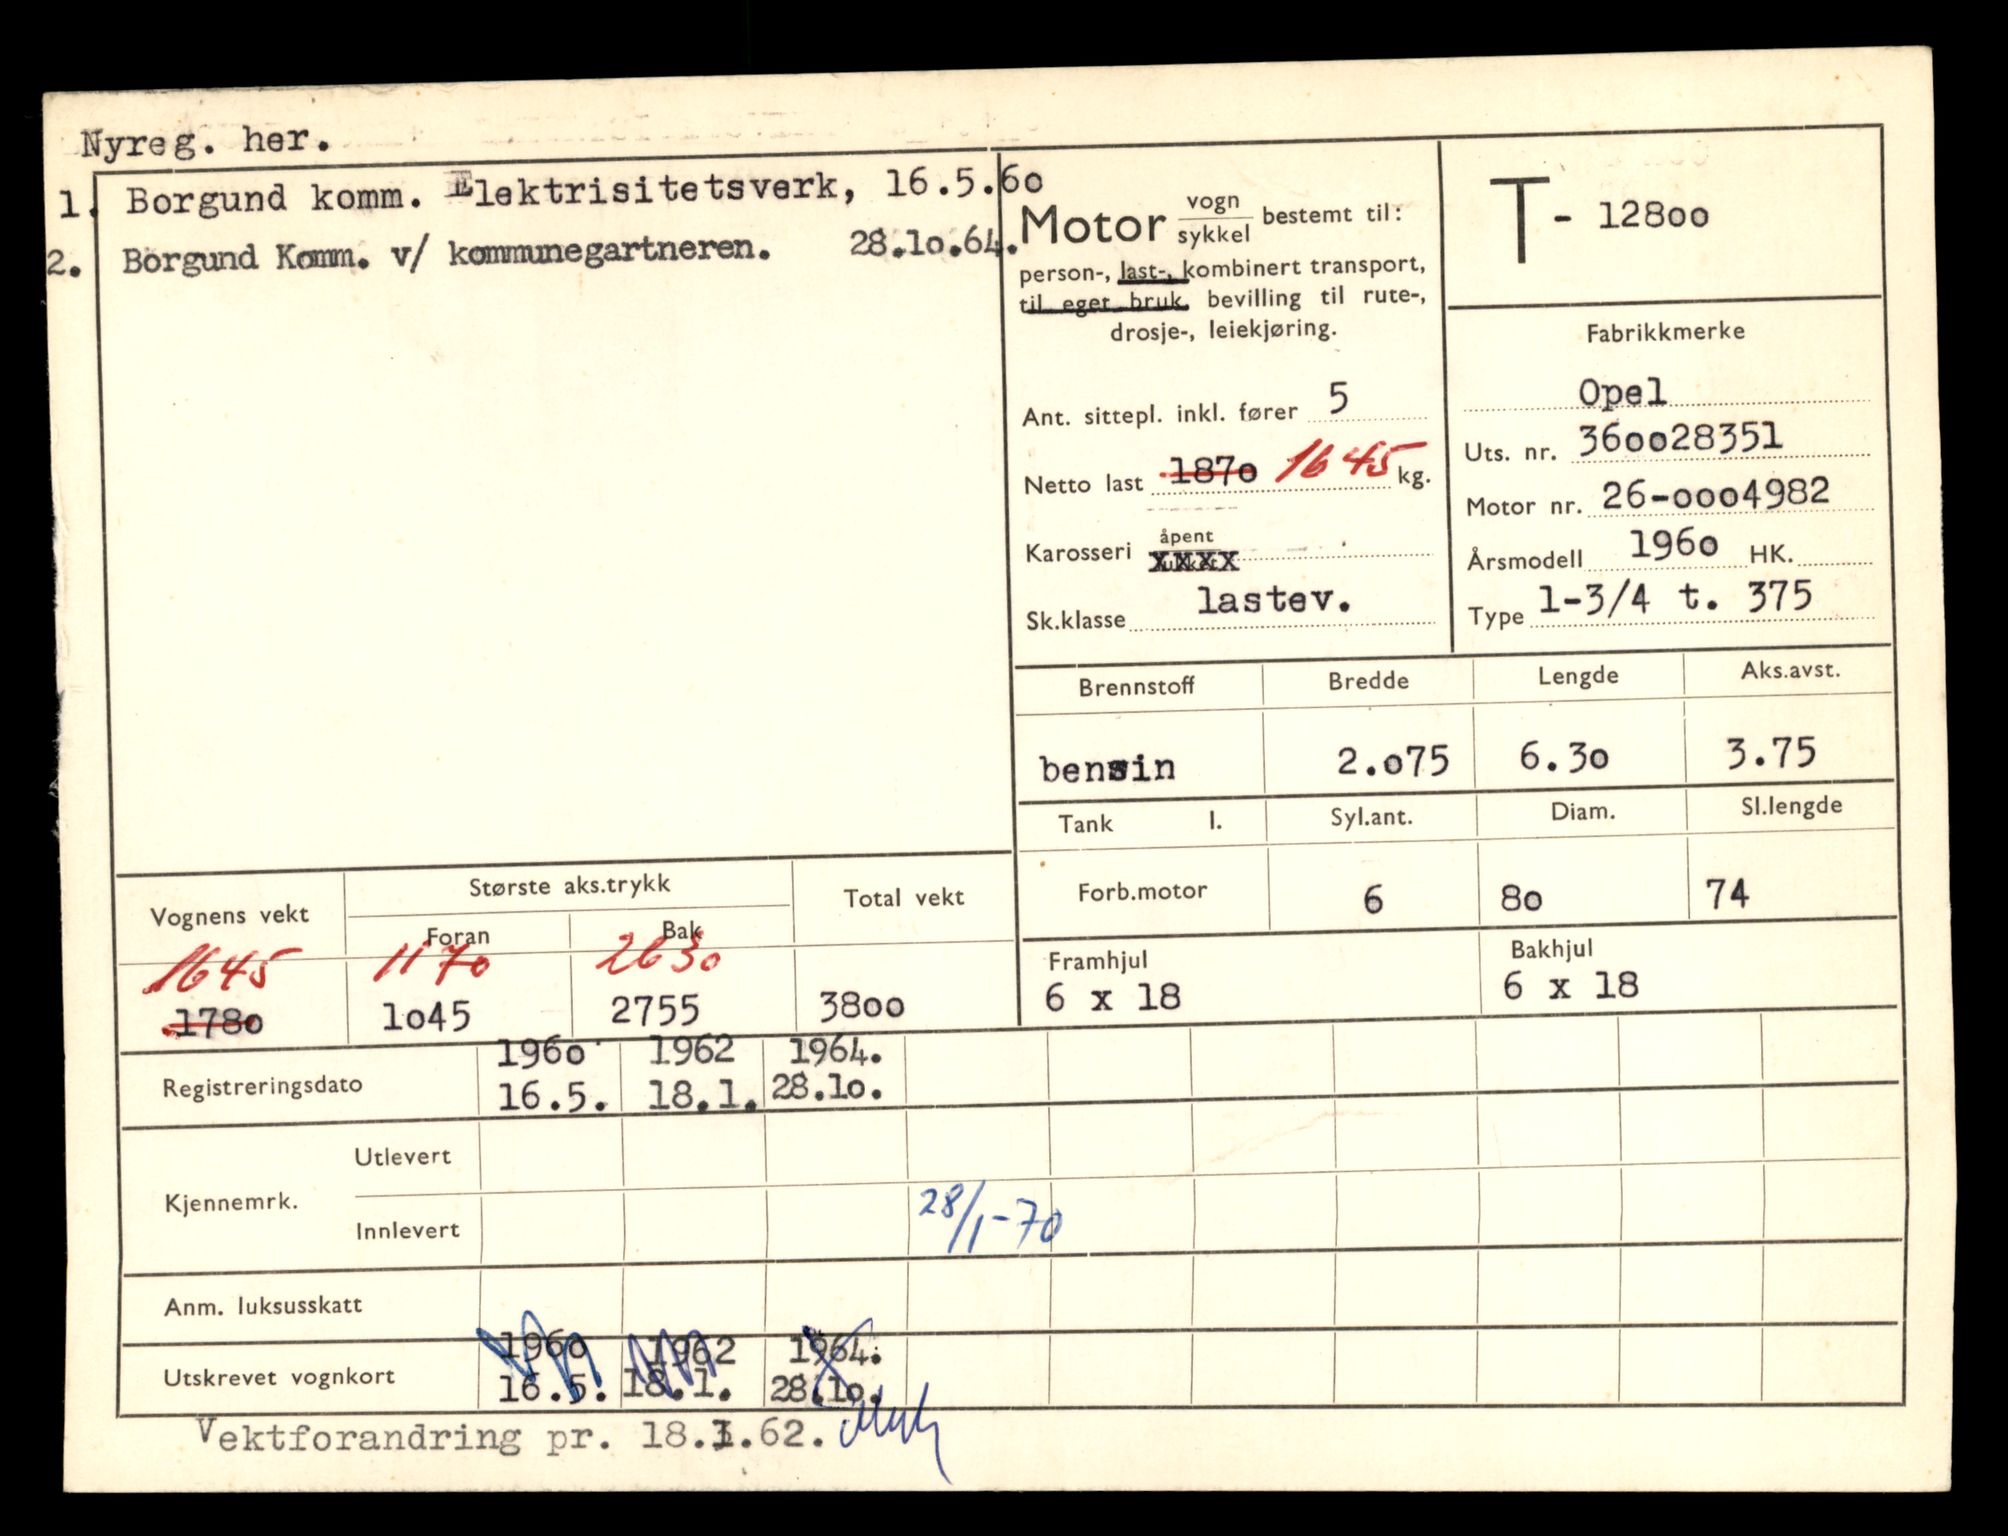 Nyreg. her.
1. Borgund komm. Elektrisitetsverk, 16.5.60
2. Borgund Komm. v/ kommunegartneren. 28.10.64.
Motor vogn
sykkel bestemt til:
person-, last-, kombinert transport,
til eget bruk, bevilling til rute-,
drosje-, leiekjøring.
Ant. sittepl. inkl. fører 5
Netto last 1870 1645 kg.
Karosseri åpent
lukket
Sk.klasse lastev.
T - 12800
Fabrikkmerke
Opel
Uts. nr. 360028351
Motor nr. 26-0004982
Årsmodell 1960 HK.
Type 1-3/4 t. 375
Brennstoff Bredde Lengde Aks.avst.
bensin 2.075 6.30 3.75
Tank l. Syl.ant. Diam. Sl.lengde
Forb.motor 6 80 74
Framhjul Bakhjul
6 x 18 6 x 18
Vognens vekt Største aks.trykk Total vekt
Foran Bak
1645 1170 2630
1780 1045 2755 3800
1960 1962 1964.
Registreringsdato 16.5. 18.1. 28.10.
Kjennemrk. Utlevert
Innlevert 28/1-70
Anm. luksusskatt
1960 1962 1964.
Utskrevet vognkort 16.5. 18.1. 28.10.
Vektforandring pr. 18.1.62.